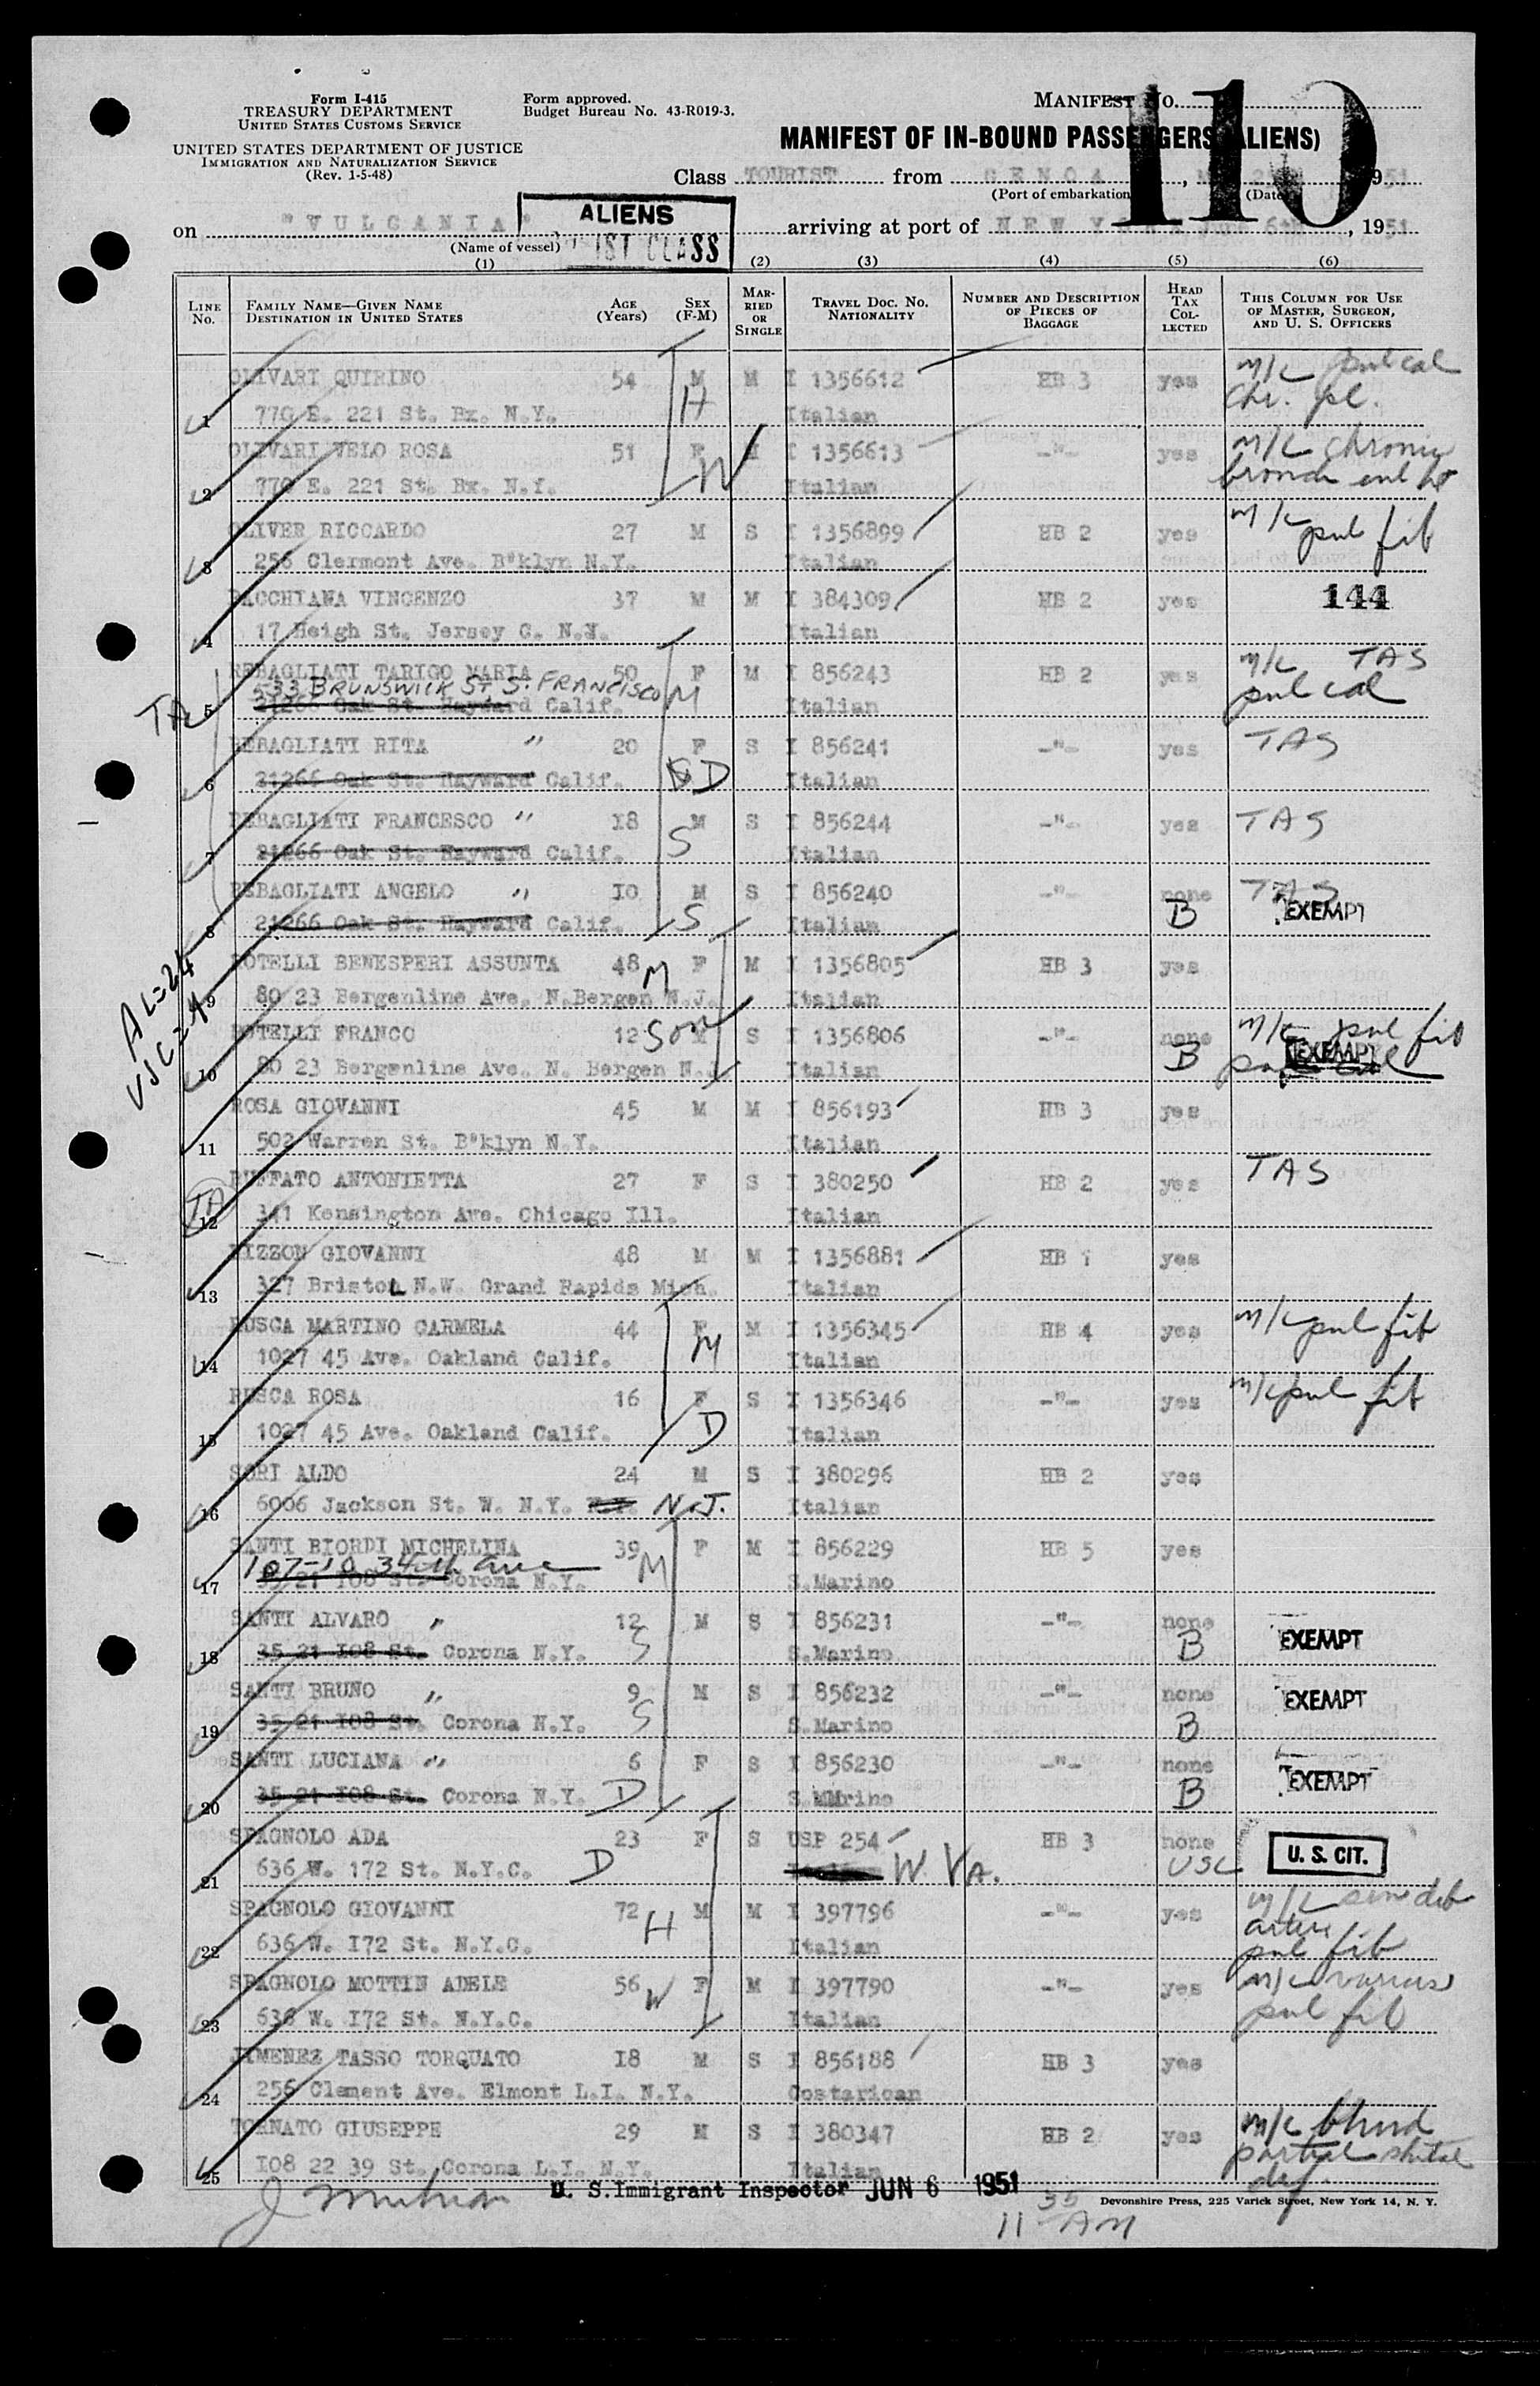 Form I-415
TREASURY DEPARTMENT
UNITED STATES CUSTOMS SERVICE
UNITED STATES DEPARTMENT OF JUSTICE
IMMIGRATION AND NATURALIZATION SERVICE
(Rev. 1-5-48)
Form approved.
Budget Bureau No. 43-R019-3.
MANIFEST NO. 110
MANIFEST OF IN-BOUND PASSENGERS (ALIENS)
Class TOURIST from GENOA, 1951
(Port of embarkation) (Date)
on "VULCANIA" arriving at port of NEW YORK June 6th, 1951
(Name of vessel)
ALIENS
1ST CLASS
(1) (2) (3) (4) (5) (6)
LINE No. FAMILY NAME—GIVEN NAME DESTINATION IN UNITED STATES AGE (Years) SEX (F-M) MARRIED OR SINGLE TRAVEL DOC. NO. NATIONALITY NUMBER AND DESCRIPTION OF PIECES OF BAGGAGE HEAD TAX COLLECTED THIS COLUMN FOR USE OF MASTER, SURGEON, AND U. S. OFFICERS
OLIVARI QUIRINO 54 M M I 1356612 HB 3 yes m/c pul cal
1 770 E. 221 St. Bx. N.Y. H Italian Chr. pl.
OLIVARI VELO ROSA 51 F M I 1356613 -"- yes m/c chronic
2 770 E. 221 St. Bx. N.Y. W Italian
OLIVER RICCARDO 27 M S I 1356899 HB 2 yes m/c pul fib
3 256 Clermont Ave. B'klyn N.Y. Italian
BACCHIANA VINCENZO 37 M M I 384309 HB 2 yes 144
4 17 Heigh St. Jersey C. N.J. Italian
REBAGLIATI TARIGO MARIA 50 F M I 856243 HB 2 yes m/c TAS
533 BRUNSWICK ST. S. FRANCISCO M pul cal
TA 5 21266 Oak St. Hayward Calif. Italian
REBAGLIATI RITA " 20 F S I 856241 -"- yes TAS
6 21266 Oak St. Hayward Calif. D Italian
REBAGLIATI FRANCESCO " 18 M S I 856244 -"- yes TAS
7 21266 Oak St. Hayward Calif. S Italian
REBAGLIATI ANGELO " 10 M S I 856240 -"- none TAS
8 21266 Oak St. Hayward Calif. S Italian B EXEMPT
ROTELLI BENESPERI ASSUNTA 48 M F M I 1356805 HB 3 yes
9 80 23 Bergenline Ave. N.Bergen N.J. Italian
AL=24
USC=1
ROTELLI FRANCO 12 Son M S I 1356806 -"- none m/c pul fib
10 80 23 Bergenline Ave. N. Bergen N.J. Italian B EXEMPT
ROSA GIOVANNI 45 M M I 856193 HB 3 yes
11 502 Warren St. B'klyn N.Y. Italian
RUFFATO ANTONIETTA 27 F S I 380250 HB 2 yes TAS
TA 12 341 Kensington Ave. Chicago Ill. Italian
RIZZON GIOVANNI 48 M M I 1356881 HB 1 yes
13 327 Bristol N.W. Grand Rapids Mich. Italian
RUSCA MARTINO CARMELA 44 F M I 1356345 HB 4 yes m/c pul fib
14 1027 45 Ave. Oakland Calif. M Italian
RUSCA ROSA 16 F S I 1356346 -"- yes m/c pul fib
15 1027 45 Ave. Oakland Calif. D Italian
SORI ALDO 24 M S I 380296 HB 2 yes
16 6006 Jackson St. W. N.Y. N.Y. N.J. Italian
SANTI BIORDI MICHELINA 39 F M I 856229 HB 5 yes
107-10 34th ave M
17 35 21 108 St. Corona N.Y. S.Marino
SANTI ALVARO " 12 M S I 856231 -"- none
18 35 21 108 St. Corona N.Y. S S.Marino B EXEMPT
SANTI BRUNO " 9 M S I 856232 -"- none EXEMPT
19 35 21 108 St. Corona N.Y. S S.Marino B
SANTI LUCIANA " 6 F S I 856230 -"- none
20 35 21 108 St. Corona N.Y. D S.Marino B EXEMPT
SPAGNOLO ADA 23 F S USP 254 HB 3 none U. S. CIT.
21 636 W. 172 St. N.Y.C. D Italian W. VA. USC
SPAGNOLO GIOVANNI 72 H M M I 397796 -"- yes m/c sene deb
22 636 W. 172 St. N.Y.C. Italian pul fib
SPAGNOLO MOTTIN ADELE 56 W F M I 397790 -"- yes m/c
23 636 W. 172 St. N.Y.C. Italian pul fib
JIMENEZ TASSO TORQUATO 18 M S I 856188 HB 3 yes
24 256 Clement Ave. Elmont L.I. N.Y. Costarican
TORNATO GIUSEPPE 29 M S I 380347 HB 2 yes m/c
25 108 22 39 St. Corona L.I. N.Y. Italian partial
U. S. Immigrant Inspector JUN 6 1951
11 35 AM
Devonshire Press, 225 Varick Street, New York 14, N. Y.